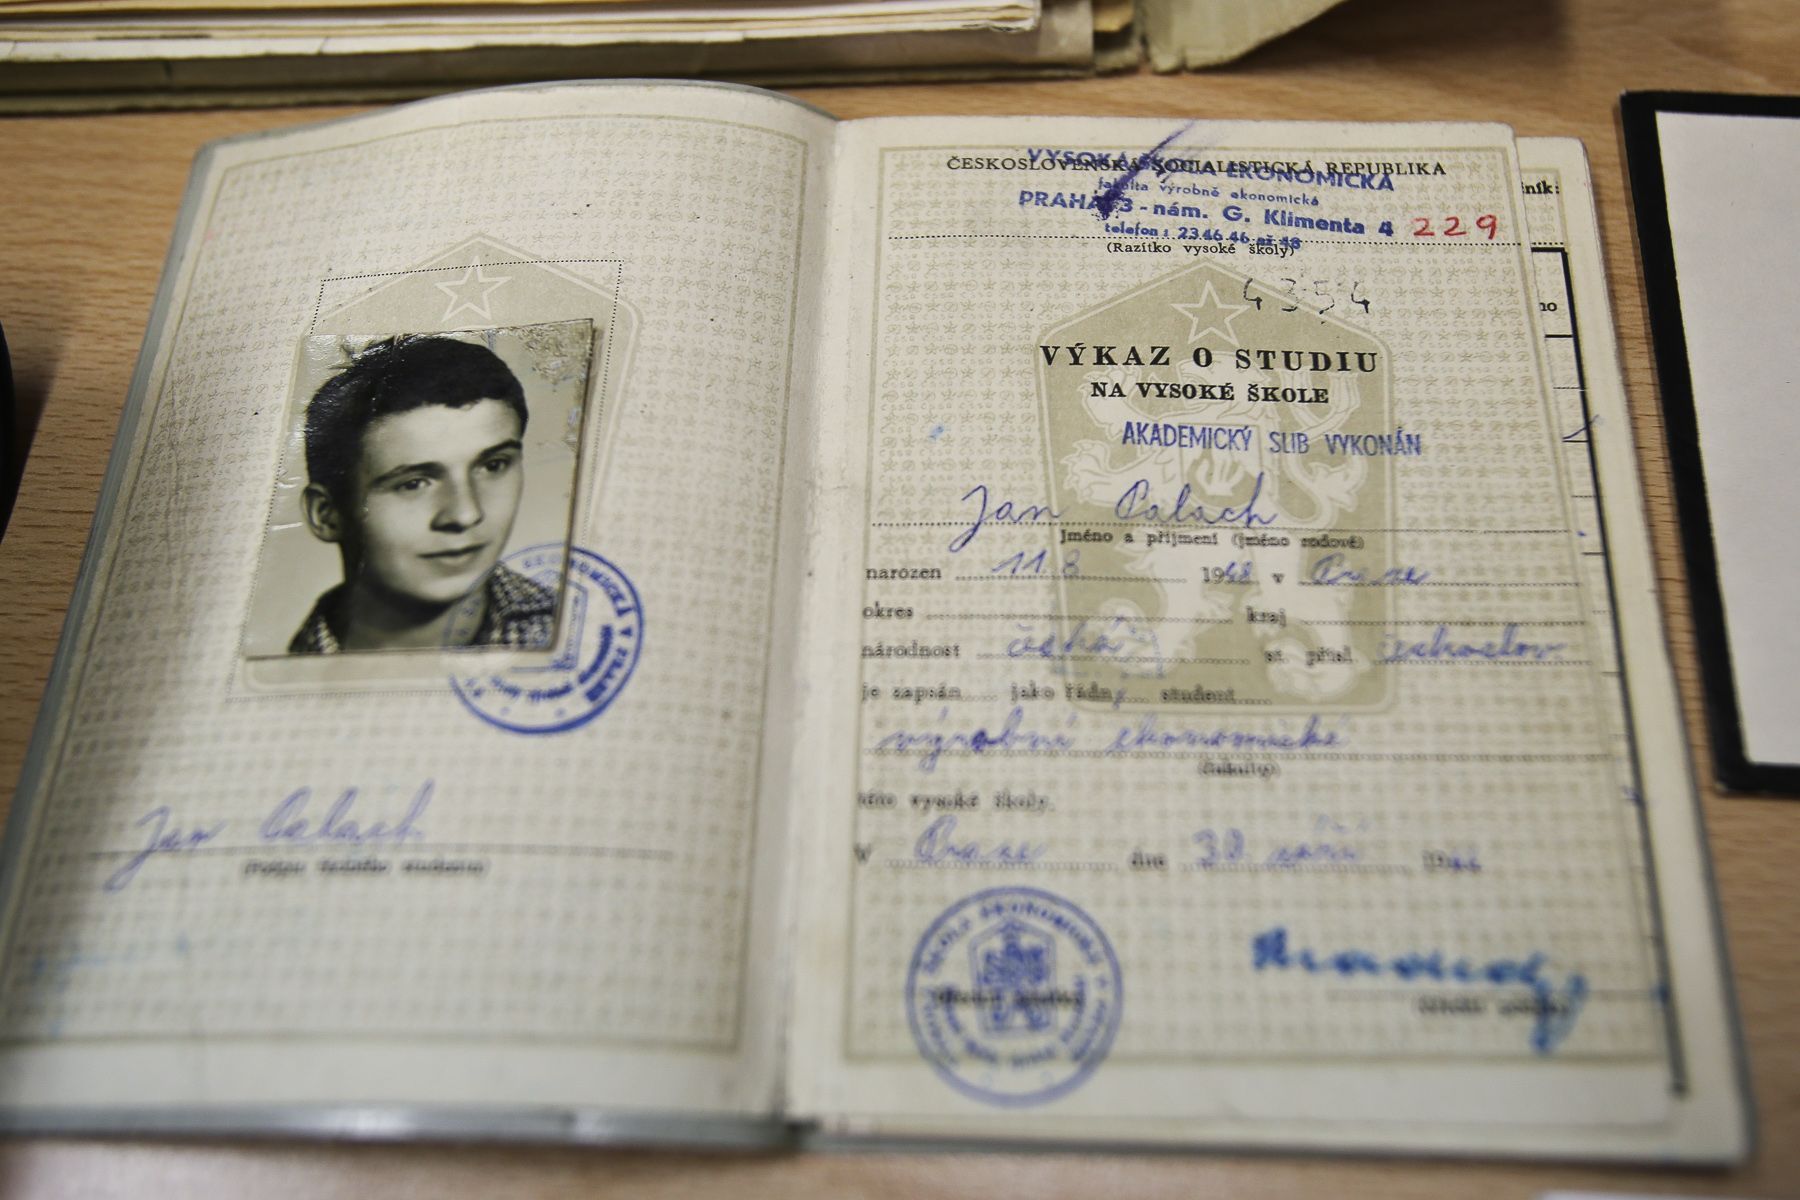 Jan Palach
ČESKOSLOVENSKÁ SOCIALISTICKÁ REPUBLIKA
VYSOKÁ ŠKOLA EKONOMICKÁ
fakulta výrobně ekonomická
PRAHA 3 - nám. G. Klimenta 4 229
telefon: 23 46 46 až 48
(Razítko vysoké školy)
4354
VÝKAZ O STUDIU
NA VYSOKÉ ŠKOLE
AKADEMICKÝ SLIB VYKONÁN
Jan Palach
Jméno a příjmení (jméno rodové)
narozen 11.8 1948 v Praze
okres kraj
národnost česká st. přísl. českoslov.
je zapsán jako řádný student
výrobně ekonomické
(fakulty)
této vysoké školy.
V Praze dne 30 září 19